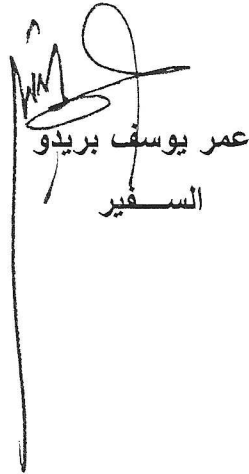 عمر يوسف بريدو
السفير